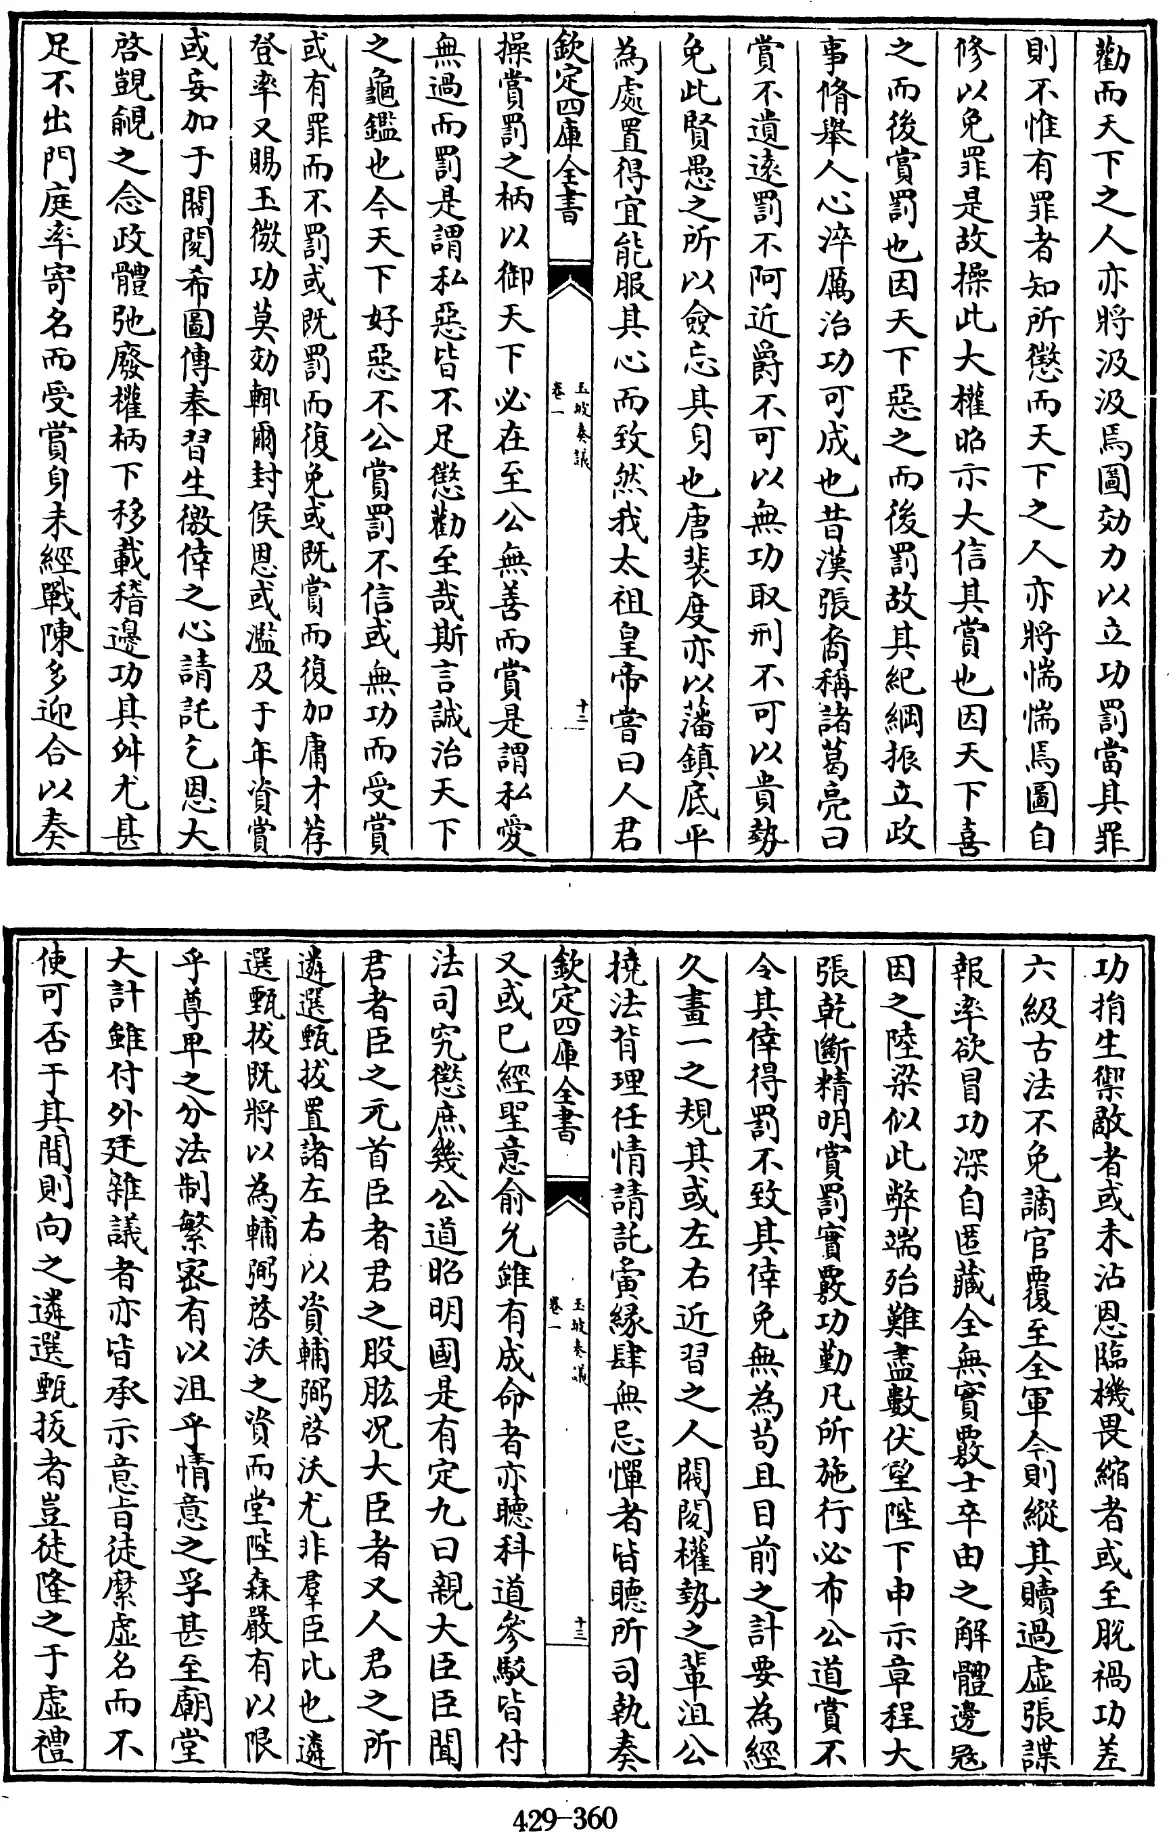 勸而天下之人亦將汲汲焉圖効力以立功罰當其罪
則不惟有罪者知所懲而天下之人亦將惴惴焉圖自
修以免罪是故操此大權昭示大信其賞也因天下喜
之而後賞罰也因天下惡之而後罰故其紀綱振立政
事脩舉人心淬厲治功可成也昔漢張裔稱諸葛亮曰
賞不遺遠罰不阿近爵不可以無功取刑不可以貴勢
免此賢愚之所以僉忘其身也唐裴度亦以藩鎮底平
為處置得宜能服其心而致然我太祖皇帝嘗曰人君
欽定四庫全書
玉坡奏議
卷一
十二
操賞罰之柄以御天下必在至公無善而賞是謂私愛
無過而罰是謂私惡皆不足懲勸至哉斯言誠治天下
之龜鑑也今天下好惡不公賞罰不信或無功而受賞
或有罪而不罰或既罰而復免或既賞而復加庸才荐
登率又賜玉微功莫効輒爾封侯恩或濫及于年資賞
或妄加于閥閱希圖傳奉習生徼倖之心請託乞恩大
啓覬覦之念政體弛廢權柄下移載稽邊功其舛尤甚
足不出門庭率寄名而受賞身未經戰陳多迎合以奏
功捐生禦敵者或未沾恩臨機畏縮者或至脫禍功差
六級古法不免謫官覆至全軍今則縱其贖過虛張諜
報率欲冒功深自匿藏全無實覈士卒由之解體邊冦
因之陸梁似此弊端殆難盡數伏望陛下申示章程大
張乾斷精明賞罰實覈功勤凡所施行必布公道賞不
令其倖得罰不致其倖免無為苟且目前之計要為經
久畫一之規其或左右近習之人閥閱權勢之輩沮公
撓法背理任情請託夤緣肆無忌憚者皆聽所司執奏
欽定四庫全書
玉坡奏議
卷一
十三
又或已經聖意俞允雖有成命者亦聽科道參駮皆付
法司究懲庶幾公道昭明國是有定九曰親大臣臣聞
君者臣之元首臣者君之股肱况大臣者又人君之所
遴選甄拔置諸左右以資輔弼啓沃尤非羣臣比也遴
選甄拔既將以為輔弼啓沃之資而堂陛森嚴有以限
乎尊卑之分法制繁密有以沮乎情意之孚甚至廟堂
大計雖付外廷雜議者亦皆承示意旨徒縻虛名而不
使可否于其間則向之遴選甄拔者豈徒隆之于虛禮
429-360